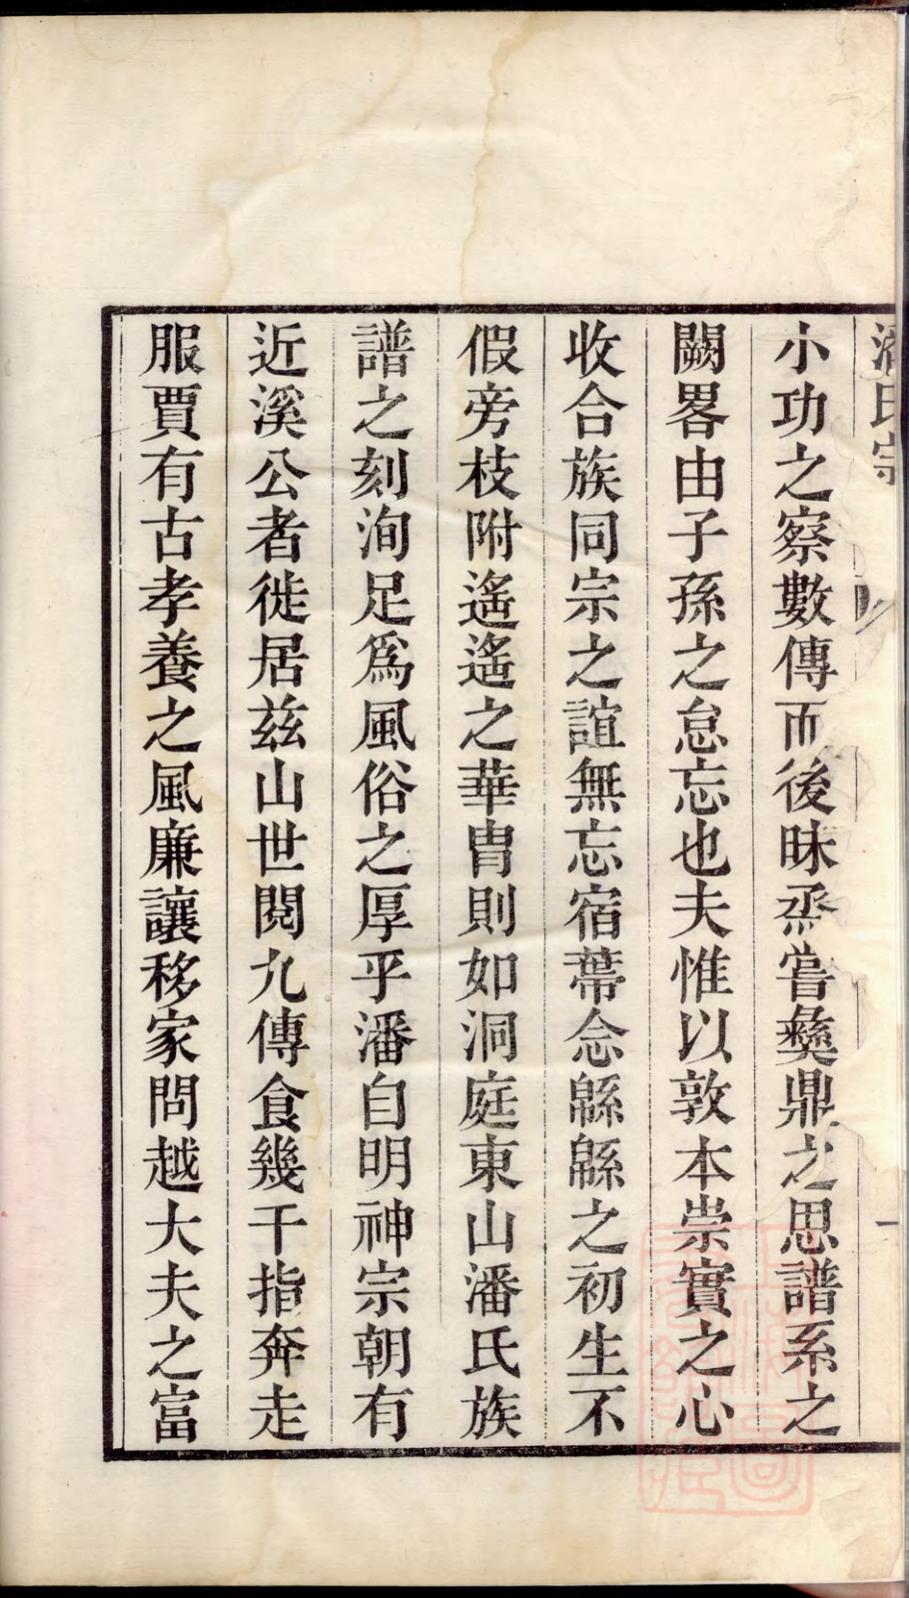 潘氏宗
一
小功之察數傳而後昧烝嘗彝鼎之思譜系之
闕畧由子孫之怠忘也夫惟以敦本崇實之心
收合族同宗之誼無忘宿蔕念緜緜之初生不
假旁枝附遙遙之華胄則如洞庭東山潘氏族
譜之刻洵足爲風俗之厚乎潘自明神宗朝有
近溪公者徙居茲山世閱九傳食幾千指奔走
服賈有古孝養之風廉讓移家問越大夫之富